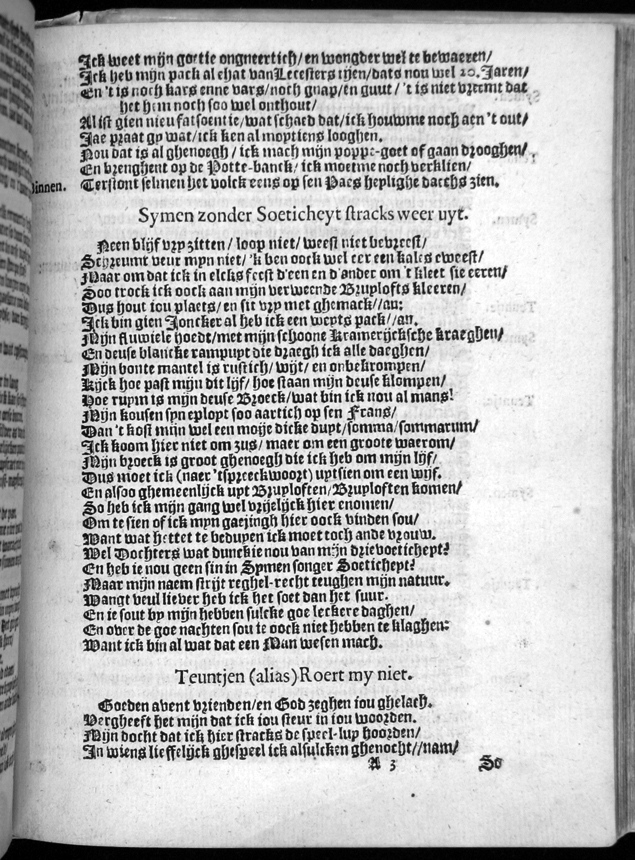 Ick weet mijn goetie ongneertich/ en wongder wel te bewaeren/
Ick heb mijn pack al ehat van Lecesters tijen/ dats nou wel 20. Jaren/
En 't is noch kars enne vars/ noch gnap/ en guut/ 't is niet vremt dat
het hem noch soo wel onthout/
Al ist gien nieu fatsoentie/ wat schaed dat/ ick houwme noch aen 't out/
Jae praat gy wat/ ick ken al moytiens looghen.
Nou dat is al ghenoegh/ ick mach mijn poppe-goet of gaan drooghen/
En brenghent op de Potte-banck/ ick moetme noch verklien/
Binnen. Terstont selmen het volck eens op sen Paes heylighe daeghs zien.
Symen zonder Soeticheyt stracks weer uyt.
Neen blijf vry zitten/ loop niet/ weest niet bevreest/
Schreumt veur myn niet/ 'k ben oock wel eer een kales eweest/
Maar om dat ick in elcks feest d'een en d'ander om 't kleet sie eeren/
Soo trock ick oock aan mijn verweende Bruylofts kleeren/
Dus hout iou plaets/ en sit vry met ghemack//an:
Ick bin gien Joncker al heb ick een weyts pack//an.
Mijn fluwiele hoedt/ met mijn schoone Kramerijcksche kraeghen/
En deuse blancke rampuyt die draegh ick alle daeghen/
Mijn bonte mantel is rustich/ wijt/ en onbekrompen/
Kijck hoe past mijn dit lijf/ hoe staan mijn deuse klompen/
Hoe ruym is mijn deuse Broeck/ wat bin ick nou al mans!
Mijn kousen syn eployt soo aartich op sen Frans/
Dan 't kost mijn wel een moije dicke duyt/ somma/ sommarum/
Ick koom hier niet om zus/ maer om een groote waerom/
Mijn broeck is groot ghenoegh die ick heb om mijn lijf/
Dus moet ick (naer 'tspreeckwoort) uytsien om een wijf.
En alsoo ghemeenlijck uyt Bruyloften/ Bruyloften komen/
So heb ick mijn gang wel vrijelijck hier enomen/
Om te sien of ick myn gaejingh hier oock vinden sou/
Want wat hettet te beduyen ick moet toch ande vrouw.
Wel Dochters wat dunckie nou van mijn drievoeticheyt?
En heb ie nou geen sin in Symen songer Soeticheyt?
Maar mijn naem strijt reghel-recht teughen mijn natuur.
Wangt veul liever heb ick het soet dan het suur.
En ie sout by mijn hebben sulcke goe leckere daghen/
En over de goe nachten sou ie oock niet hebben te klaghen:
Want ick bin al wat dat een Man wesen mach.
Teuntjen (alias) Roert my niet.
Goeden avent vrienden/ en God zeghen iou ghelach.
Vergheeft het mijn dat ick iou steur in iou woorden.
Mijn docht dat ick hier stracks de speel-luy hoorden/
In wiens lieffelijck ghespeel ick alsulcken ghenocht//nam/
A 3 So